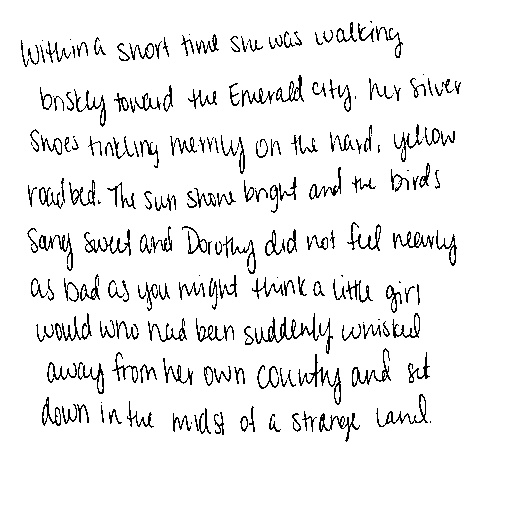 Within a short time she was walking
briskly toward the Emerald City. her silver
Shoes tinkling merrily on the hard, yellow
roadbed. The sun shone bright and the birds
Sang sweet and Dorothy did not feel nearly
as bad as you might think a little girl
would who had been suddenly whisked
away from her own country and set
down in the midst of a strange land.